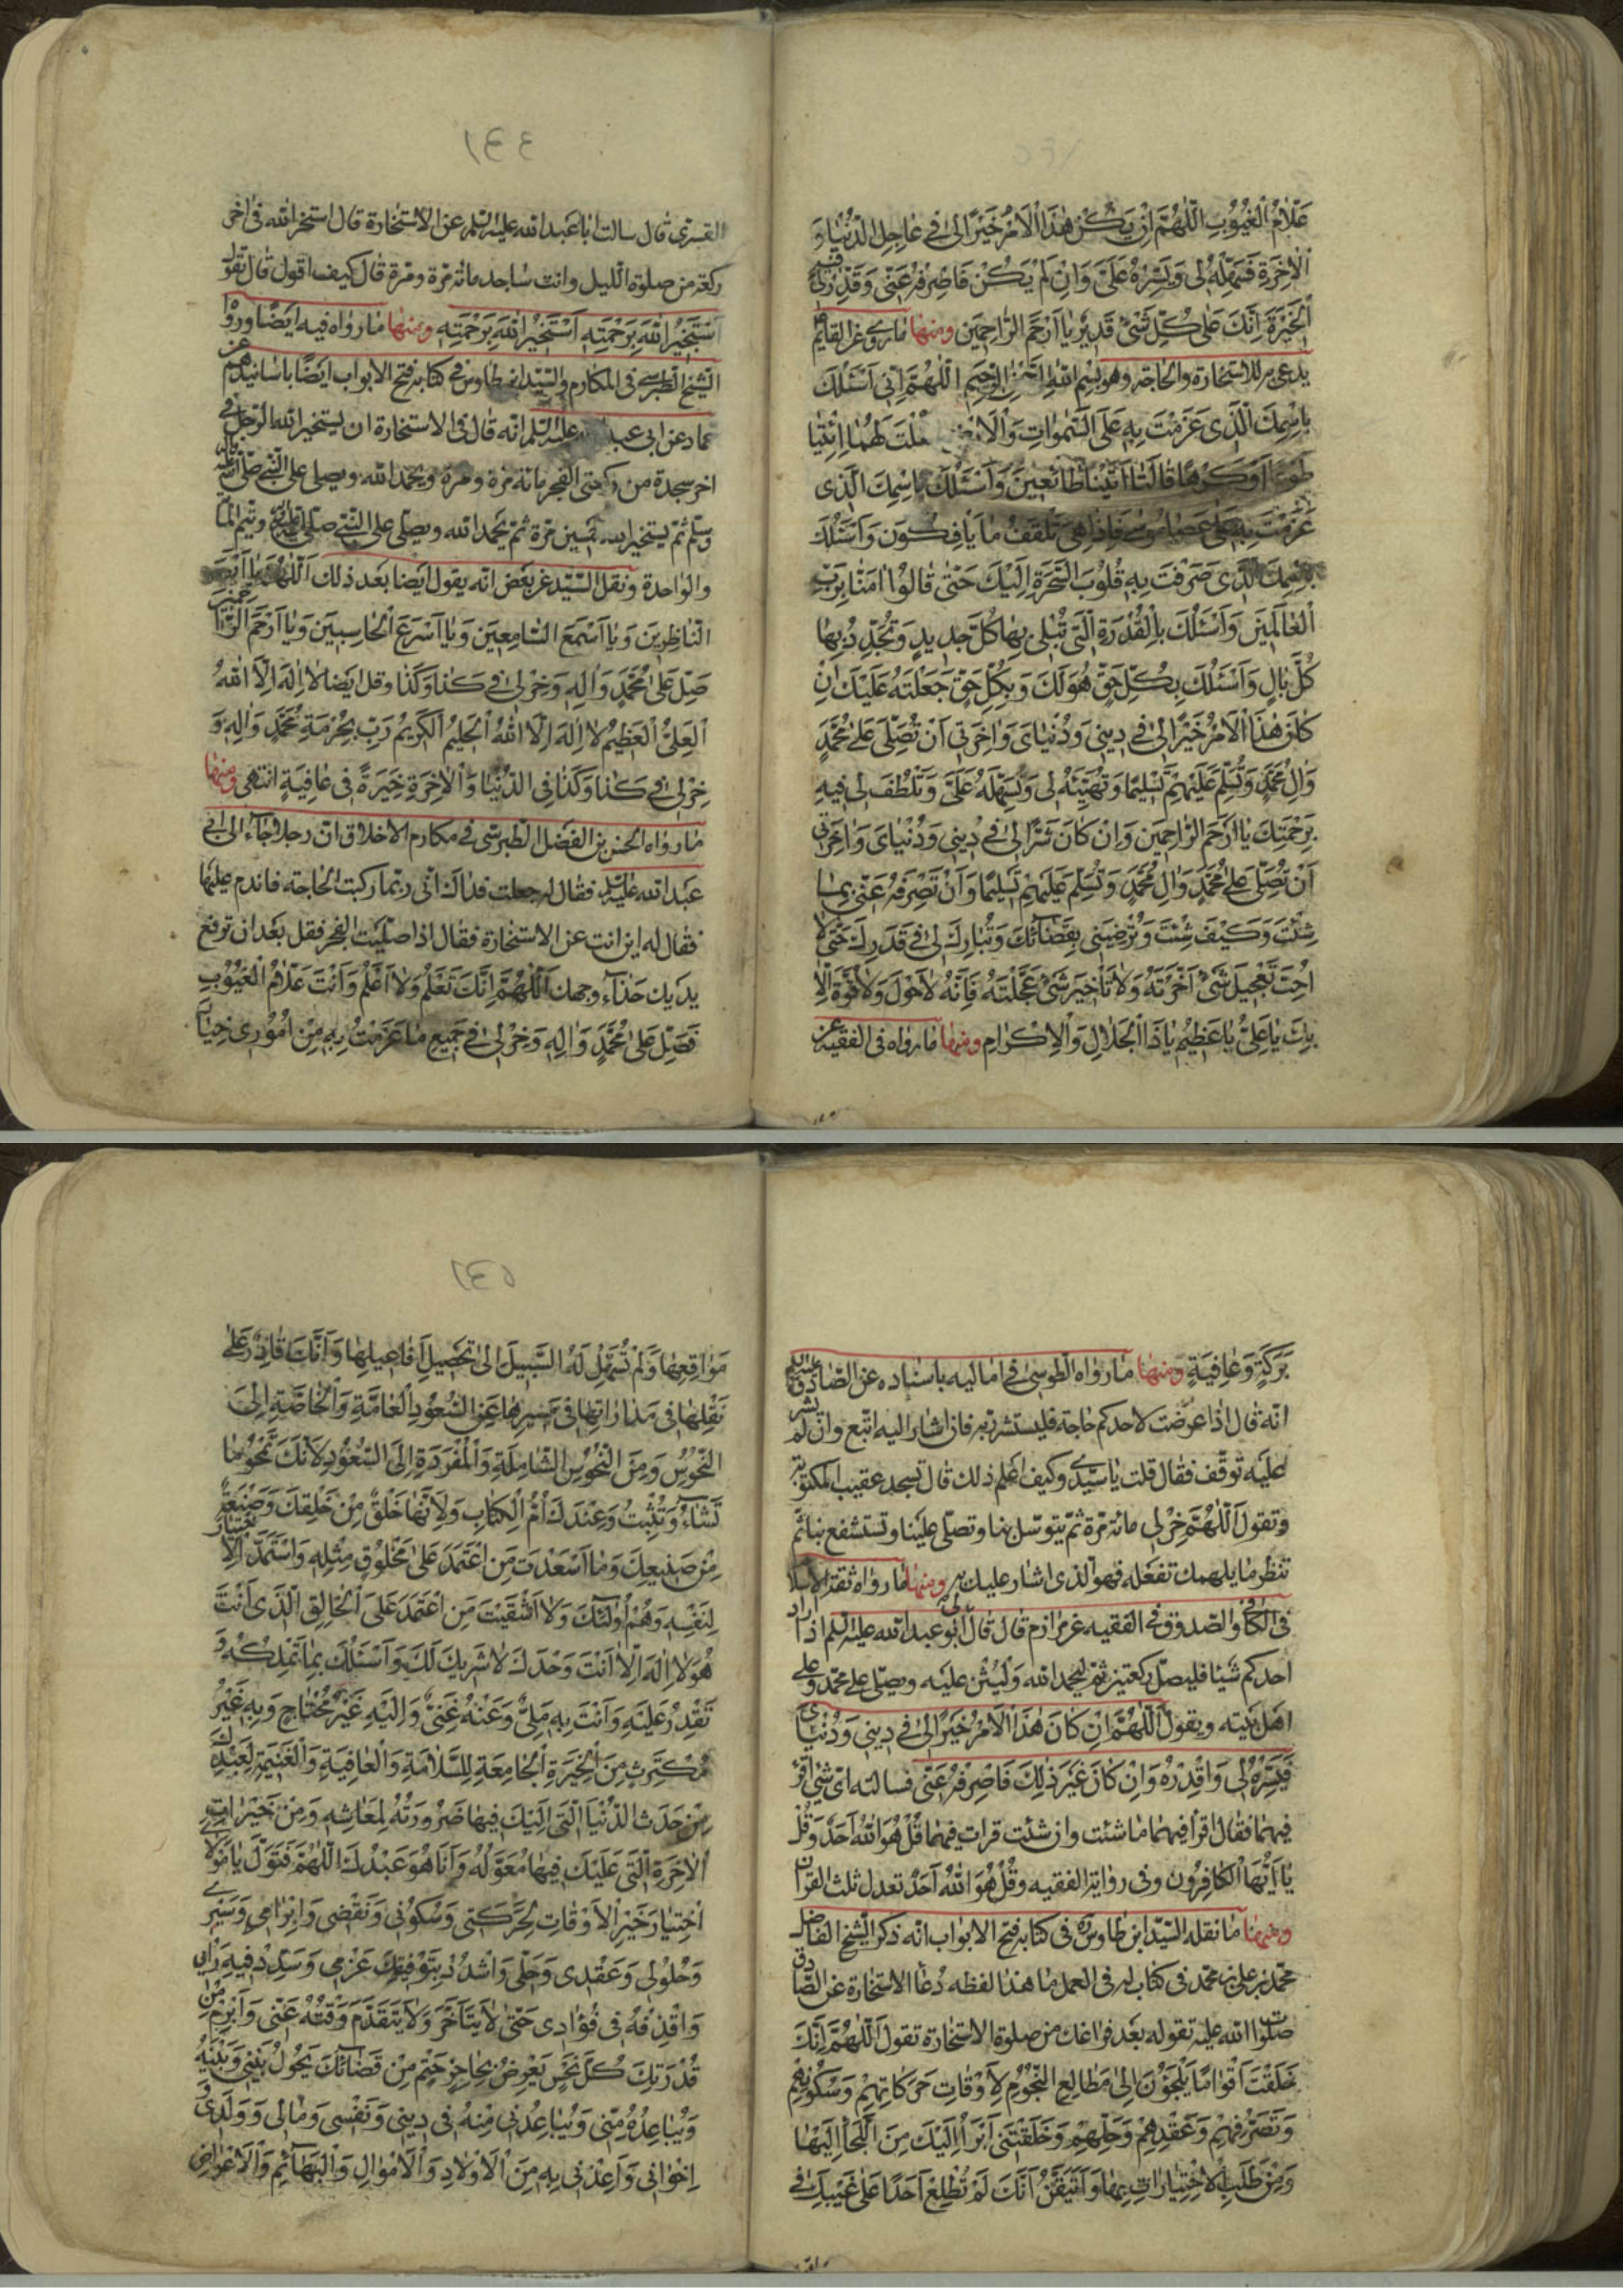 عَلّامُ الْغُيُوبِ اَللّٰهُمَّ اِنْ يَكُنْ هٰذَا الْاَمْرُ خَيْرًا لى فى عَاجِلِ الدُّنْيَا وَ
الْاٰخِرَةِ فَسَهِّلْهُ لى وَيَسِّرْهُ عَلَىَّ وَاِنْ لَمْ يَكُنْ فَاصْرِفْهُ عَنّى وَقَدِّرْ لى فيه
الْخِيَرَةَ اِنَّكَ عَلى كُلِّ شَىْءٍ قَديرٌ يا اَرْحَمَ الرّاحِمينَ ومنها ما روى عن القايم
يدعى به للاستخارة والحاجة وهو بِسْمِ اللهِ الرَّحْمنِ الرَّحيمِ اَللّٰهُمَّ اِنّى اَسْئَلُكَ
بِاسْمِكَ الَّذى عَزَمْتَ بِهِ عَلَى السَّمٰواتِ وَالْاَرْضِ فقلت لَهُمَا ائْتِيَا
طَوْعًا اَوْ كَرْهًا قَالَتَا اَتَيْنَا طَائِعينَ وَاَسْئَلُكَ بِاسْمِكَ الَّذى
عَزَمْتَ بِهِ عَلى عَصَا مُوسى فَاِذَا هِىَ تَلْقَفُ مَا يَاْفِكُونَ وَاَسْئَلُكَ
بِاسْمِكَ الَّذى صَرَفْتَ بِهِ قُلُوبَ السَّحَرَةِ اِلَيْكَ حَتّى قَالُوا اٰمَنّا بِرَبِّ
الْعَالَمينَ وَاَسْئَلُكَ بِالْقُدْرَةِ الَّتى تُبْلى بِهَا كُلَّ جَديدٍ وَتُجَدِّدُ بِهَا
كُلَّ بَالٍ وَاَسْئَلُكَ بِكُلِّ حَقٍّ هُوَ لَكَ وَبِكُلِّ حَقٍّ جَعَلْتَهُ عَلَيْكَ اِنْ
كَانَ هٰذَا الْاَمْرُ خَيْرًا لى فى دينى وَدُنْيَاىَ وَاٰخِرَتى اَنْ تُصَلِّىَ عَلى مُحَمَّدٍ
وَاٰلِ مُحَمَّدٍ وَتُسَلِّمَ عَلَيْهِمْ تَسْليمًا وَتُهَيِّئَهُ لى وَتُسَهِّلَهُ عَلَىَّ وَتَلْطُفَ لى فيهِ
بِرَحْمَتِكَ يا اَرْحَمَ الرّاحِمينَ وَاِنْ كَانَ شَرًّا لى فى دينى وَدُنْيَاىَ وَاٰخِرَتى
اَنْ تُصَلِّىَ عَلى مُحَمَّدٍ وَاٰلِ مُحَمَّدٍ وَتُسَلِّمَ عَلَيْهِمْ تَسْليمًا وَاَنْ تَصْرِفَهُ عَنّى بِمَا
شِئْتَ وَكَيْفَ شِئْتَ وَتُرْضِيَنى بِقَضَائِكَ وَتُبَارِكَ لى فى قَدَرِكَ حَتّى لا
اُحِبَّ تَعْجيلَ شَىْءٍ اَخَّرْتَهُ وَلا تَاْخيرَ شَىْءٍ عَجَّلْتَهُ فَاِنَّهُ لا حَوْلَ وَلا قُوَّةَ اِلّا
بِكَ يا عَلِىُّ يا عَظيمُ يا ذَا الْجَلالِ وَالْاِكْرامِ ومنها ما رواه فى الفقيه عن
القسرى قال سالت ابا عبد الله عليه السلم عن الاستخارة قال استخر الله فى اخر
ركعة من صلوة الليل وانت ساجد مائة مرة ومرة قال كيف اقول قال تقول
اَسْتَخيرُ اللهَ بِرَحْمَتِهِ اَسْتَخيرُ اللهَ بِرَحْمَتِهِ ومنها ما رواه فيه ايضًا وروا
الشيخ الطبرسى فى المكارم والسّيد ابن طاوس فى كتابه فتح الابواب ايضًا باسانيدهم عن
حماد عن ابى عبد الله عليه السلم انه قال فى الاستخارة ان يستخير الله الرجل فى
اخر سجدة من ركعتى الفجر مائة مرة ومرة ويحمد الله ويصلى على النبى صلى الله عليه واله
وسلم ثم يستخير الله خمسين مرة ثم يحمد الله ويصلّى على النبى صلى الله عليه واله ويتم المائة
والواحدة ونقل السّيد عن بعض انه يقول ايضا بعد ذلك اَللّٰهُمَّ يا اَبْصَرَ
النّاظِرينَ وَيا اَسْمَعَ السّامِعينَ وَيا اَسْرَعَ الْحاسِبينَ وَيا اَرْحَمَ الرّاحمين
صَلِّ عَلى مُحَمَّدٍ وَاٰلِهِ وَخِرْ لى فى كَذا وَكَذا وقل ايضا لا اِلٰهَ اِلّا اللهُ
الْعَلِىُّ الْعَظيمُ لا اِلٰهَ اِلّا اللهُ الْحَليمُ الْكَريمُ رَبِّ بِحُرْمَةِ مُحَمَّدٍ وَاٰلِهِ وَ
خِرْ لى فى كَذا وَكَذا فِى الدُّنْيَا وَالْاٰخِرَةِ خِيَرَةً فى عَافِيَةٍ انتهى ومنها
ما رواه الحسن بن الفضل الطبرسى فى مكارم الاخلاق ان رجلا جاء الى ابى
عبد الله عليه السلم فقال له جعلت فداك انى ربّما ركبت الحاجة فاندم عليها
فقال له اين انت عن الاستخارة فقال اذا صلّيت الفجر فقل بعد ان ترفع
يديك حذاء وجهك اَللّٰهُمَّ اِنَّكَ تَعْلَمُ وَلا اَعْلَمُ وَاَنْتَ عَلّامُ الْغُيُوبِ
فَصَلِّ عَلى مُحَمَّدٍ وَاٰلِهِ وَخِرْ لى فى جَميعِ مَا عَزَمْتُ بِهِ مِنْ اُمُورى خِيَارَ
بَرَكَةٍ وَعَافِيَةٍ ومنها ما رواه الطوسى فى اماليه باسناده عن الصّادق عليه السلم
انه قال اذا عرضت لاحدكم حاجة فليستشر ربه فان اشار اليه اتبع وان لم يشر
عليه توقف فقال قلت يا سيّدى وكيف اعلم ذلك قال تسجد عقيب المكتوبة
وتقول اَللّٰهُمَّ خِرْ لى مائة مرة ثم يتوسل بنا وتصلّى علينا وتستشفع بنا ثم
تنظر ما يلهمك تفعله فهو الذى اشار عليك به ومنها ما رواه ثقة الاسلام
فى الكافى والصّدوق فى الفقيه عن مرازم قال قال لى ابو عبد الله عليه السلم اذا اراد
احدكم شيئا فليصلّ ركعتين ثم ليحمد الله وليُثن عليه ويصلّى على محمّد وعلى
اهل بيته ويقول اَللّٰهُمَّ اِنْ كَانَ هٰذَا الْاَمْرُ خَيْرًا لى فى دينى وَدُنْيَاىَ
فَيَسِّرْهُ لى وَاقْدِرْهُ وَاِنْ كَانَ غَيْرَ ذٰلِكَ فَاصْرِفْهُ عَنّى فسالته اى شئ اقرء
فيهما فقال اقرأ فيهما ما شئت وان شئت قرات فيهما قُلْ هُوَ اللهُ اَحَدٌ وَقُلْ
يا اَيُّهَا الْكَافِرُونَ وفى رواية الفقيه وقُلْ هُوَ اللهُ اَحَدٌ تعدل ثلث القران
ومنها ما نقله السّيد ابن طاوس ره فى كتابه فتح الابواب انه ذكر الشيخ الفاضل
محمّد بن على بن محمّد فى كتاب له فى العمل ما هذا لفظه دُعاء الاستخارة عن الصّادق
صلوات الله عليه تقوله بعد فراغك من صلوة الاستخارة تقول اَللّٰهُمَّ اِنَّكَ
خَلَقْتَ اَقْوَامًا يَلْجَؤُنَ اِلى مَطَالِعِ النُّجُومِ لِاَوْقَاتِ حَرَكَاتِهِمْ وَسُكُونِهِمْ
وَتَصَرُّفِهِمْ وَعَقْدِهِمْ وَحَلِّهِمْ وَخَلَقْتَنى اَبْرَأُ اِلَيْكَ مِنَ اللَّجَأِ اِلَيْهَا
وَمِنْ طَلَبِ الْاِخْتِيَارَاتِ بِهَا وَاَتَيَقَّنُ اَنَّكَ لَمْ تُطْلِعْ اَحَدًا عَلى غَيْبِكَ فى
مَوَاقِعِهَا وَلَمْ تُسَهِّلْ لَهُ السَّبيلَ اِلى تَحْصيلِ اَفَاعيلِهَا وَاَنَّكَ قَادِرٌ عَلى
نَقْلِهَا فى مَدَارَاتِهَا فى مَسيرِهَا عَنِ السُّعُودِ الْعَامَّةِ وَالْخَاصَّةِ اِلَى
النُّحُوسِ وَمِنَ النُّحُوسِ الشَّامِلَةِ وَالْمُفْرَدَةِ اِلَى السُّعُودِ لِاَنَّكَ تَمْحُو مَا
تَشَاءُ وَتُثْبِتُ وَعِنْدَكَ اُمُّ الْكِتَابِ وَلِاَنَّهَا خَلْقٌ مِنْ خَلْقِكَ وَصَنْعَةٌ
مِنْ صَنيعِكَ وَمَا اَسْعَدْتَ مَنِ اعْتَمَدَ عَلى مَخْلُوقٍ مِثْلِهِ وَاسْتَمَدَّ الاختيار
لِنَفْسِهِ وَهُمْ اُولٰئِكَ وَلا اَشْقَيْتَ مَنِ اعْتَمَدَ عَلَى الْخَالِقِ الَّذى اَنْتَ
هُوَ لا اِلٰهَ اِلّا اَنْتَ وَحْدَكَ لا شَريكَ لَكَ وَاَسْئَلُكَ بِمَا تَمْلِكُهُ وَ
تَقْدِرُ عَلَيْهِ وَاَنْتَ بِهِ مَلِىٌّ وَعَنْهُ غَنِىٌّ وَاِلَيْهِ غَيْرُ مُحْتَاجٍ وَبِهِ غَيْرُ
مُكْتَرِثٍ مِنَ الْخِيَرَةِ الْجَامِعَةِ لِلسَّلامَةِ وَالْعَافِيَةِ وَالْغَنيمَةِ لِعَبْدِكَ
مِنْ حَدَثِ الدُّنْيَا الَّتى اِلَيْكَ فيهَا ضَرُورَتُهُ لِمَعَاشِهِ وَمِنْ خَيْرَاتِ
الْاٰخِرَةِ الَّتى عَلَيْكَ فيهَا مُعَوَّلُهُ وَاَنَا هُوَ عَبْدُكَ اَللّٰهُمَّ فَتَوَلَّ يا مَوْلاىَ
اخْتِيَارَ خَيْرِ الْاَوْقَاتِ لِحَرَكَتى وَسُكُونى وَنَقْضى وَاِبْرَامى وَسَيْرى
وَحُلُولى وَعَقْدى وَحَلّى وَاشْدُدْ بِتَوْفيقِكَ عَزْمى وَسَدِّدْ فيهِ رَاْيى
وَاقْذِفْهُ فى فُؤَادى حَتّى لا يَتَاَخَّرَ وَلا يَتَقَدَّمَ وَقْتُهُ عَنّى وَاَبْرِمْ مِنْ
قُدْرَتِكَ كُلَّ نَحْسٍ يَعْرِضُ بِحَاجِزٍ حَتْمٍ مِنْ قَضَائِكَ يَحُولُ بَيْنى وَبَيْنَهُ
وَيُبَاعِدُهُ مِنّى وَيُبَاعِدُنى مِنْهُ فى دينى وَنَفْسى وَمَالى وَوَلَدى وَ
اِخْوَانى وَاَعِذْنى بِهِ مِنَ الْاَوْلادِ وَالْاَمْوَالِ وَالْبَهَائِمِ وَالْاَعْرَاضِ